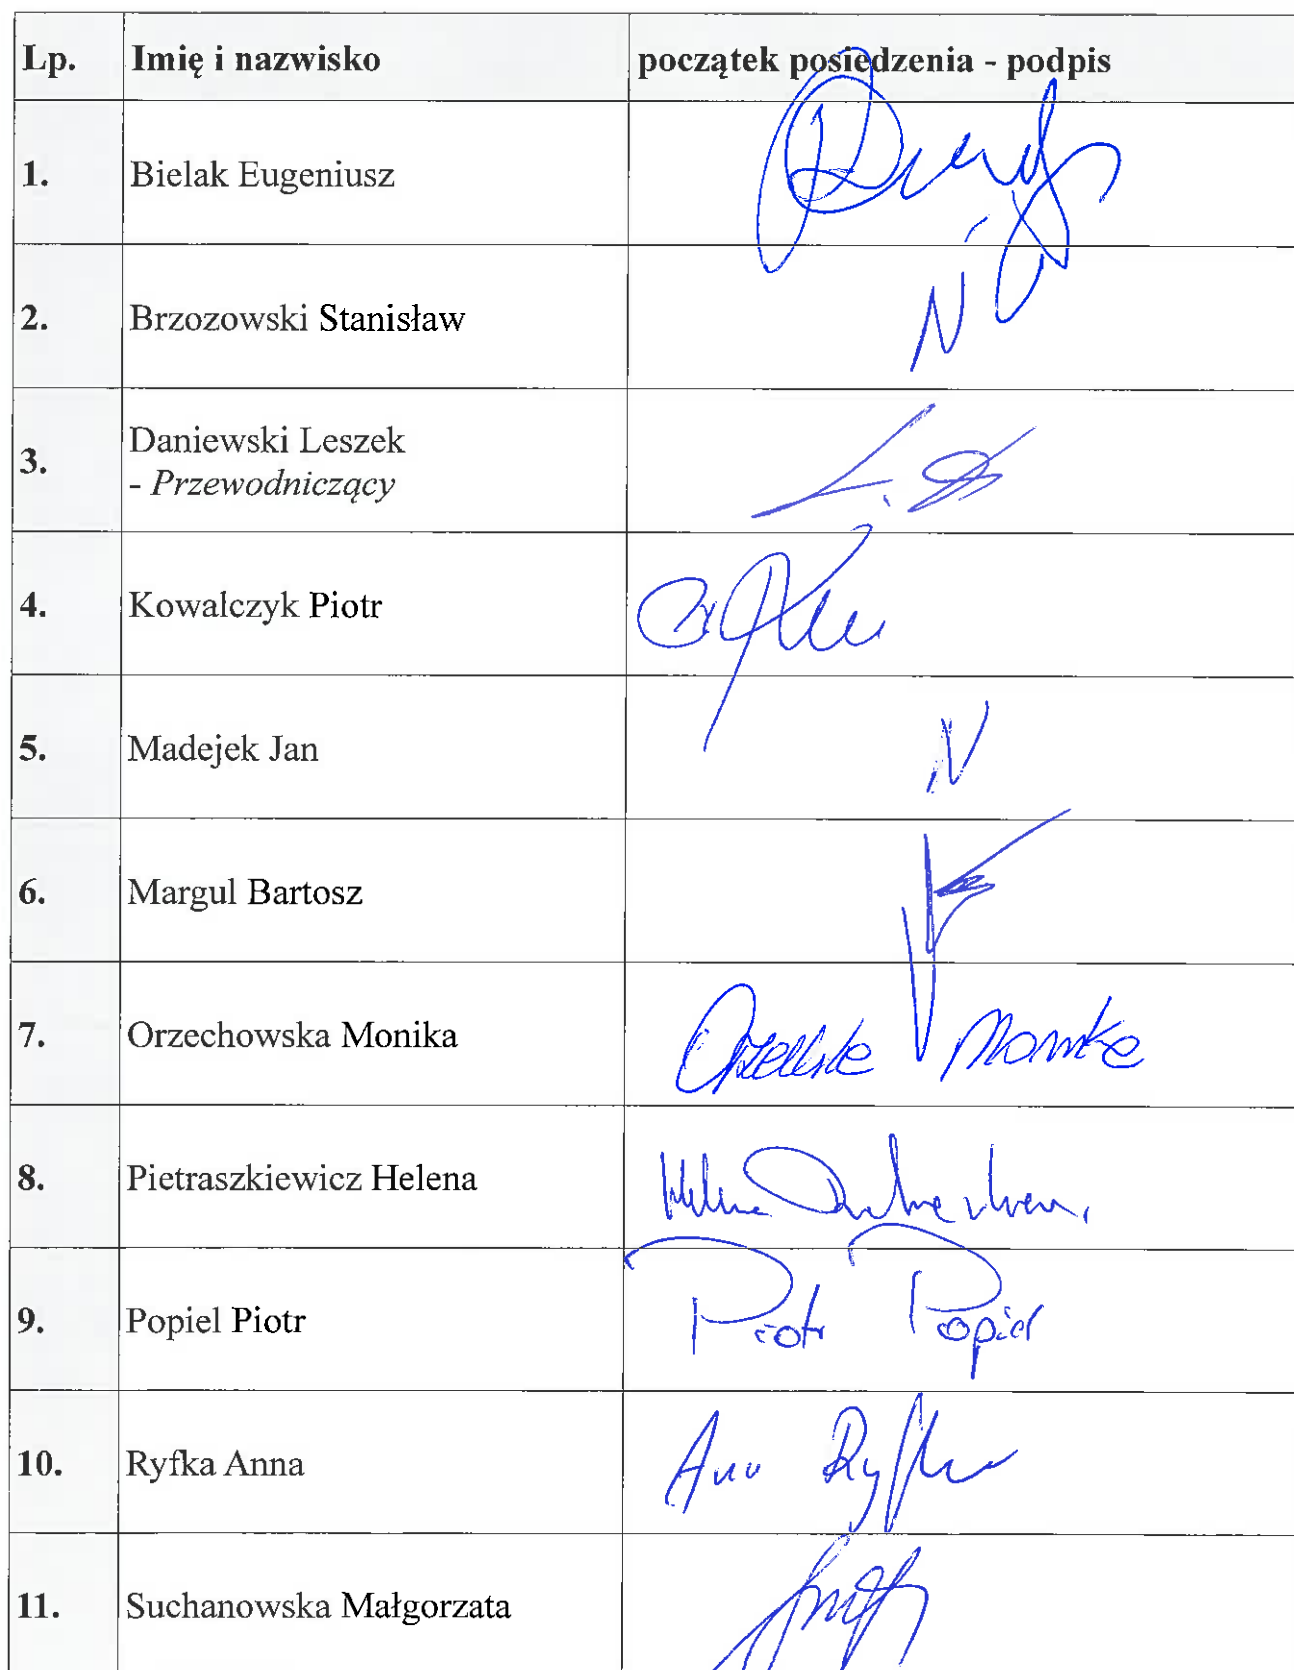 Lp. Imię i nazwisko początek posiedzenia - podpis
1. Bielak Eugeniusz
2. Brzozowski Stanisław N
3. Daniewski Leszek
- Przewodniczący
4. Kowalczyk Piotr
5. Madejek Jan N
6. Margul Bartosz
7. Orzechowska Monika
8. Pietraszkiewicz Helena
9. Popiel Piotr Piotr Popiel
10. Ryfka Anna
11. Suchanowska Małgorzata